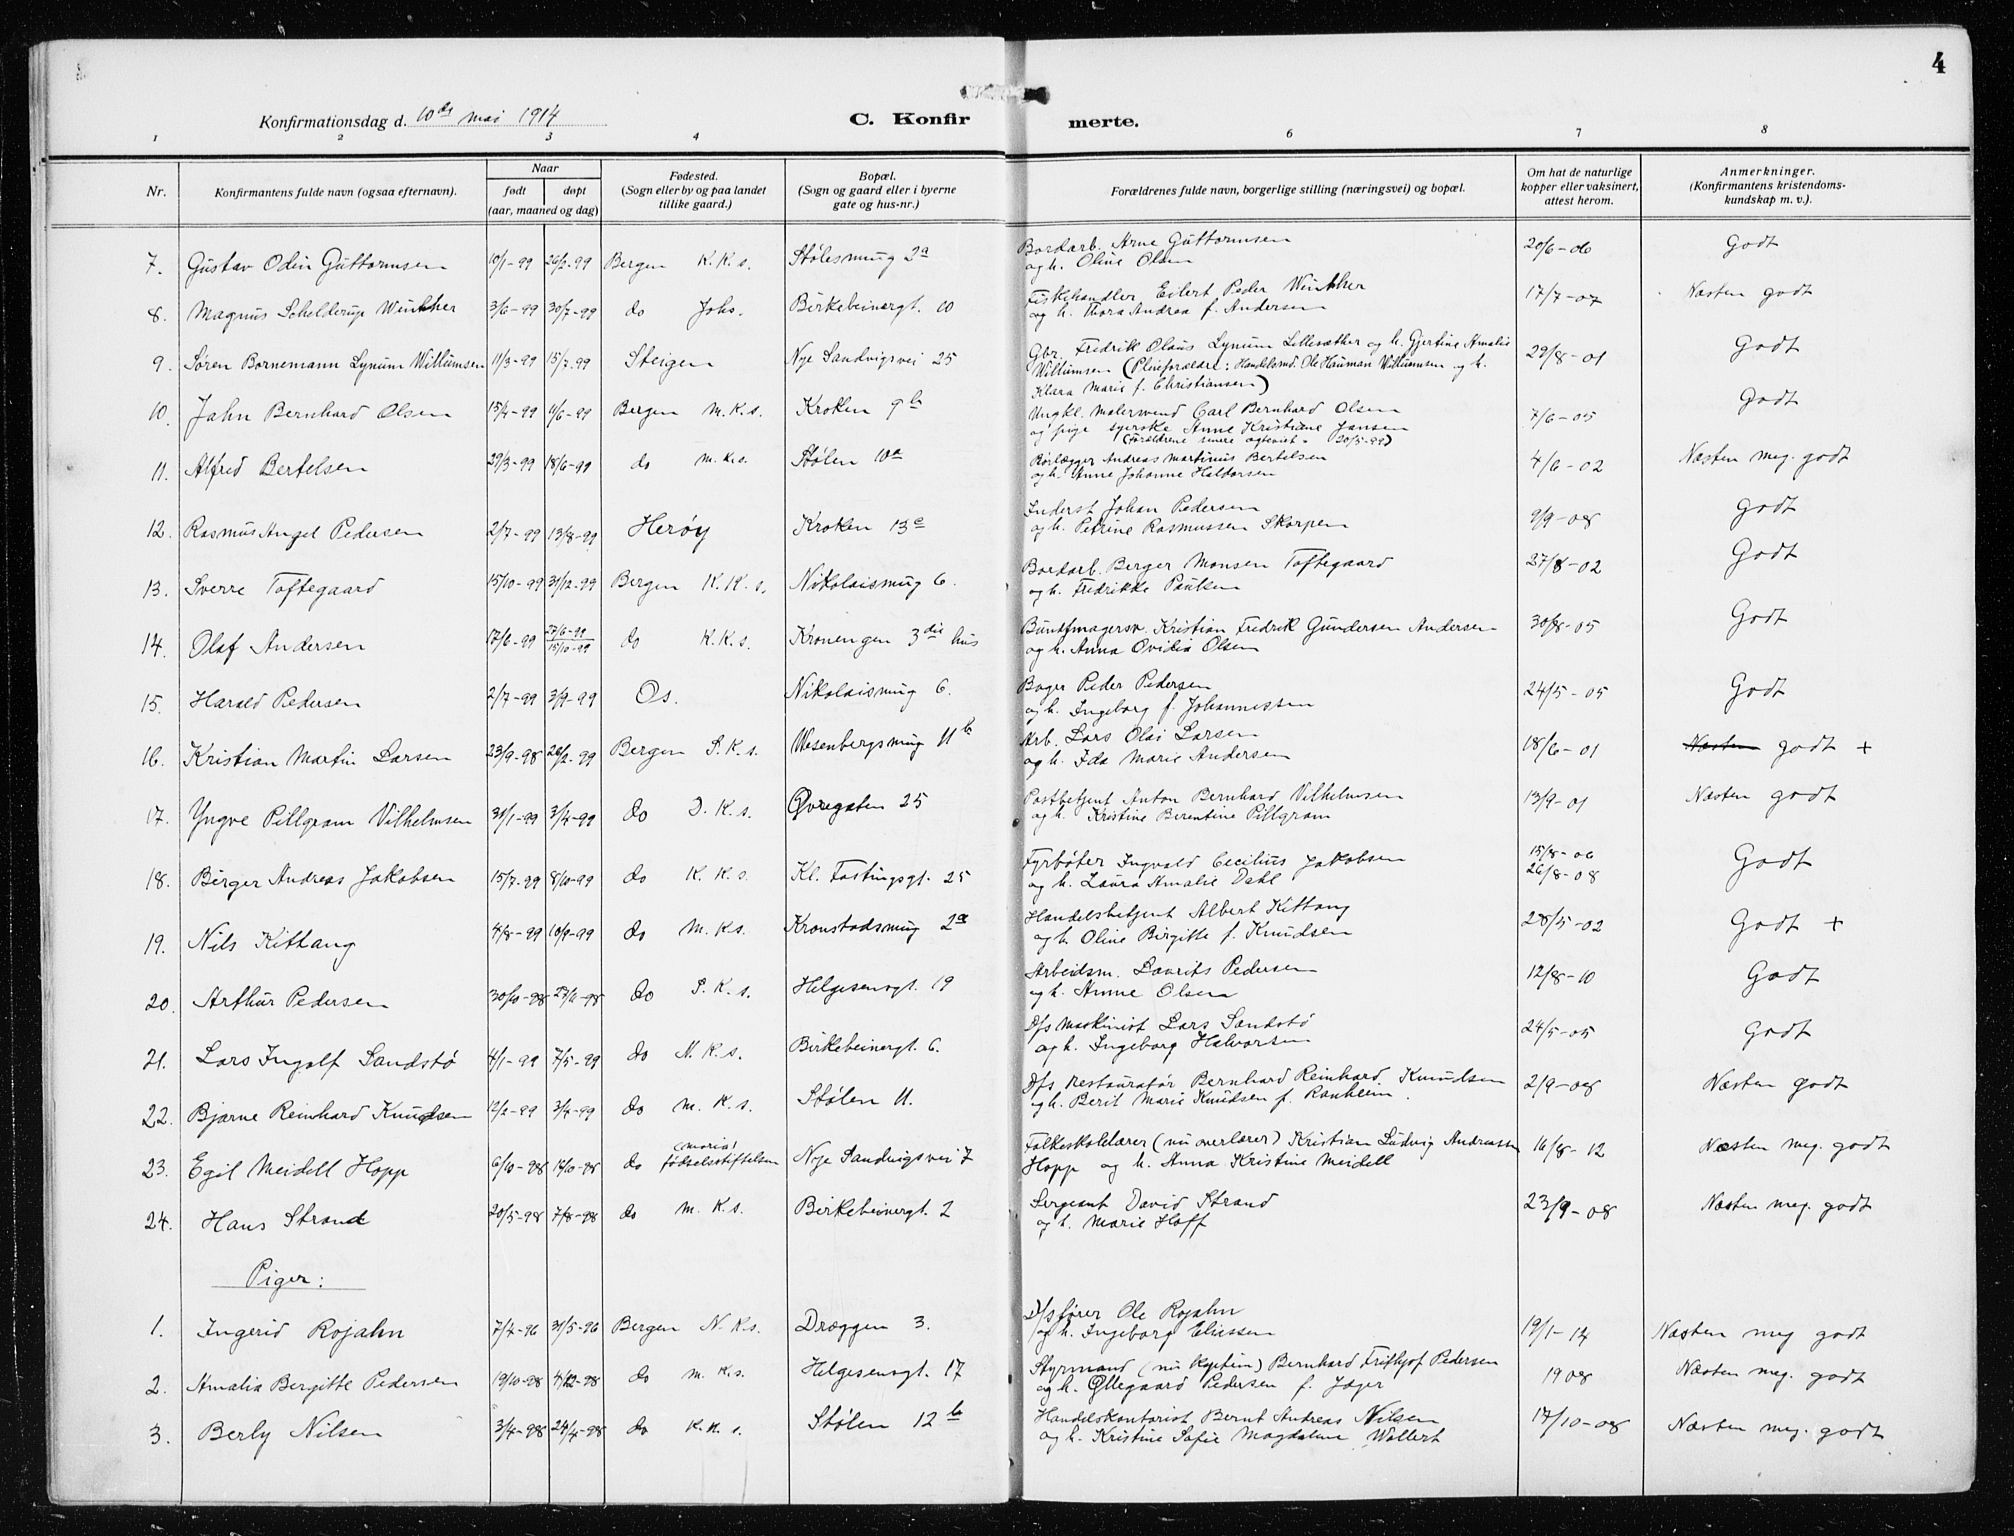 4
Konfirmationsdag d. 10de mai 1914
C. Konfirmerte.
1 2 3 4 6 7 8
Nr. Konfirmantens fulde navn (ogsaa efternavn). Naar født døpt (aar, maaned og dag) Fødested. (Sogn eller by og paa landet tillike gaard.) Bopæl. (Sogn og gaard eller i byerne gate og hus-nr.) Forældrenes fulde navn, borgerlige stilling (næringsvei) og bopæl. Om hat de naturlige kopper eller vaksinert, attest herom. Anmerkninger. (Konfirmantens kristendomskundskap m. v.).
7. Gustav Odin Guttormsen 10/1-99 26/2-99 Bergen K.K.s. Stølesmug 2a Bordarb. Arne Guttormsen 20/6-06 Godt
og h. Oline Olsen
8. Magnus Schelderup Winther 3/6-99 30/7-99 do Johs. Birkebeinergt. 10 Fiskehandler Eilert Peder Winther 17/7-07 Næsten godt
og h. Thora Andrea f. Andersen
9. Søren Bornemann Lynum Willumsen 11/3-99 15/7-99 Steigen Nye Sandvigsvei 25 Gbr. Fredrik Olaus Lynum Lillesæther og h. Gjertine Amalie 29/8-01 Godt
Willumsen (Pleieforældre: Handelsmd. Ole Hauman Willumsen og h.
Klara Marie f. Christiansen)
10. Jahn Bernhard Olsen 15/4-99 11/6-99 Bergen M.K.s. Kroken 9b Ungkl. malersvend Carl Bernhard Olsen 7/6-05 Godt
og pige syerske Anne Kristiane Jansen
(Forældrene senere egteviet 20/5-99)
11. Alfred Bertelsen 29/3-99 18/6-99 do M.K.s. Stølen 10a Rørlægger Andreas Martinus Bertelsen 4/6-02 Næsten meg. godt
og h. Anne Johanne Haldorsen
12. Rasmus Angel Pedersen 2/7-99 13/8-99 Herøy Kroken 13c Inderst Johan Pedersen 9/9-08 Godt
og h. Petrine Rasmussen Skorpen
13. Sverre Toftegaard 15/10-99 31/12-99 Bergen K.K.s. Nikolaismug 6. Bordarb. Berger Monsen Toftegaard 27/8-02 Godt
og h. Fredrikke Paulsen
14. Olaf Andersen 17/6-99 27/6-99 15/10-99 do K.K.s. Kronengen 3die hus Buntmagersv. Kristian Fredrik Gundersen Andersen 30/8-05 Godt
og h. Anna Ovidia Olsen
15. Harald Pedersen 2/7-99 3/9-99 Os. Nikolaismug 6. Bager Peder Pedersen 24/5-05 Godt
og h. Ingeborg f. Johannessen
16. Kristian Martin Larsen 23/9-98 26/2-99 Bergen S.K.s. Wesenbergsmug 11b Arb. Lars Olai Larsen 18/6-01 Næsten godt +
og h. Ida Marie Andersen
17. Yngve Pillgram Vilhelmsen 31/1-99 3/4-99 do D.K.s. Øvregaten 25 Postbetjent Anton Bernhard Vilhelmsen 13/9-01 Næsten godt
og h. Kristine Berentine Pillgram
18. Birger Andreas Jakobsen 15/7-99 8/10-99 do K.K.s. Kl. Fastingsgt. 25 Fyrbøter Ingvald Cecilius Jakobsen 15/8-06 Godt
og h. Laura Amalie Dahl 26/8-08
19. Nils Kittang 4/8-99 10/9-99 do M.K.s. Kronstadsmug 2a Handelsbetjent Albert Kittang 28/5-02 Godt +
og h. Oline Birgitte f. Knudsen
20. Arthur Pedersen do S.K.s. Helgesensgt. 19 Arbeidsm. Laurits Pedersen 12/8-10 Godt
og h. Anne Olsen
21. Lars Ingolf Sandstø 4/1-99 7/5-99 do N.K.s. Birkebeinergt. 6. D/s maskinist Lars Sandstø 24/5-05 Godt
og h. Ingeborg Halvorsen
22. Bjarne Reinhard Knudsen 12/2-99 3/4-99 do M.K.s. Stølen 11. D/s restauratør Bernhard Reinhard Knudsen 2/9-08 Næsten godt
og h. Berit Marie Knudsen f. Ranheim.
23. Egil Meidell Hopp 6/10-98 14/10-98 do (maria) fødselsstiftelsen Nye Sandvigsvei 7 Folkeskolelærer (nu overlærer) Kristian Ludvig Andreassen 16/8-12 Næsten meg. godt
Hopp og h. Anna Kristine Meidell
24. Hans Strand 20/5-98 7/8-98 do M.K.s. Birkebeinergt. 2 Sergeant David Strand 23/9-08 Næsten meg. godt
og h. Marie Hoff
Piger:
1. Ingerid Rojahn 7/4-96 31/5-96 Bergen N.K.s. Dræggen 3. D/s fører Ole Rojahn 19/1-14 Næsten meg godt
og h. Ingeborg Eliessen
2. Amalia Bergitte Pedersen 19/10-98 4/12-98 do M.K.s. Helgesensgt. 17 Styrmand (nu kaptein) Bernhard Frithjof Pedersen 1908 Næsten meg. godt
og h. Øllegaard Pedersen f. Jæger
3. Berly Nilsen 3/4-98 24/4-98 do K.K.s. Stølen 12b Handelskontorist Bernt Andreas Nilsen 17/10-08 Næsten meg. godt
og h. Kristine Sofie Magdalene Wollert